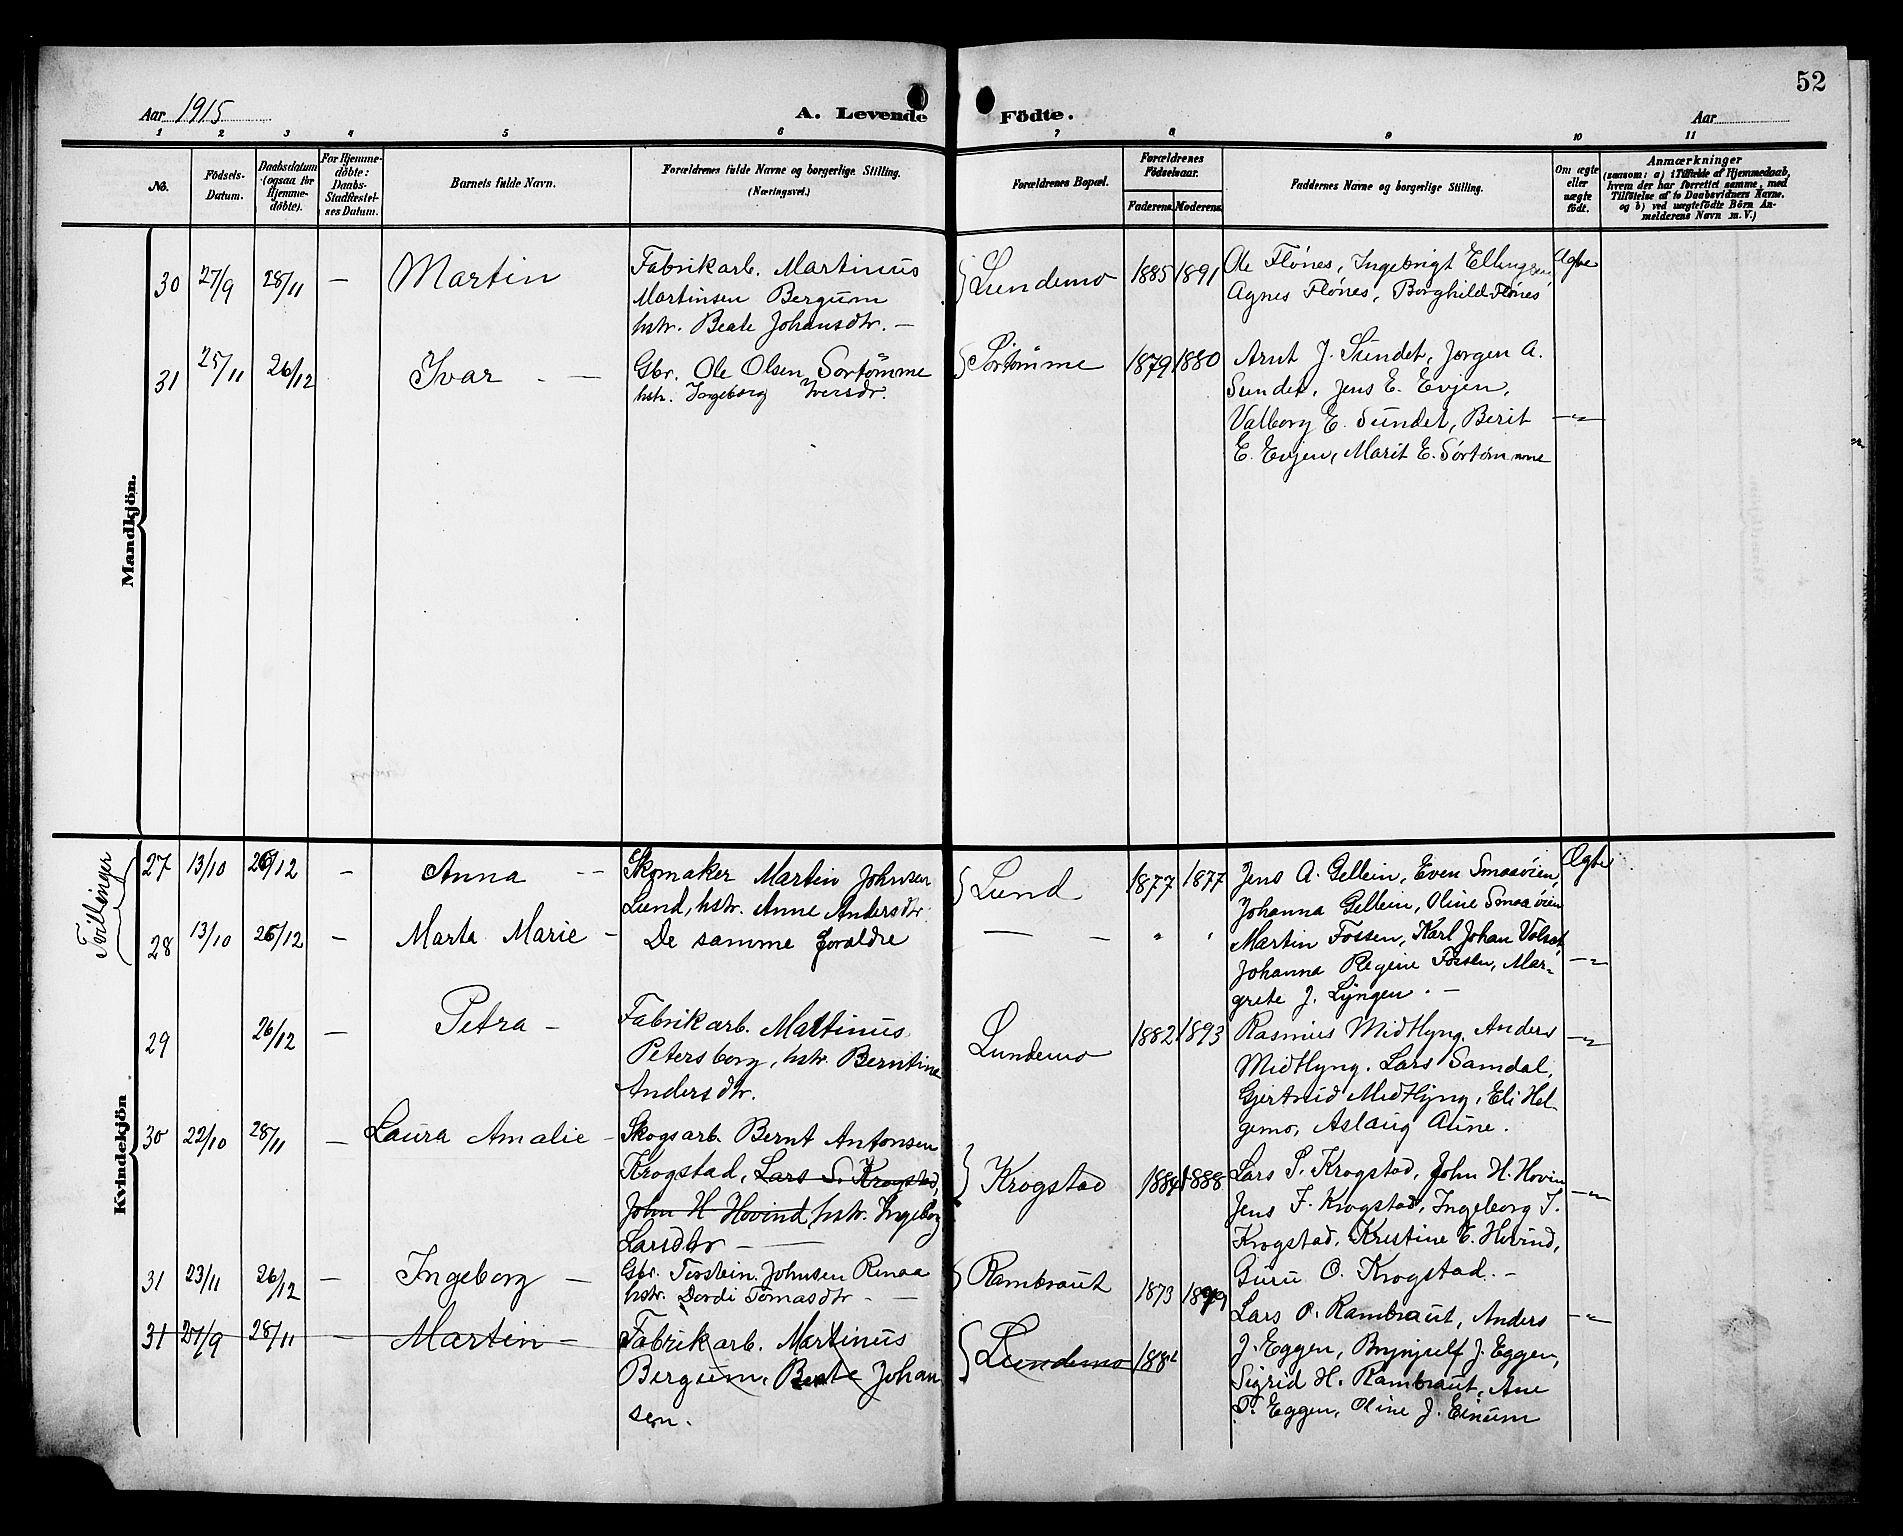 52
Aar 1915
A. Levende Födte.
Aar
1 2 3 4 5 6 7 8 9 10 11
No.
Födsels-Datum.
Daabsdatum (ogsaa for Hjemme-döbte).
For Hjemme-döbte: Daabs-Stadfæstel-ses Datum.
Barnets fulde Navn.
Forældrenes fulde Navne og borgerlige Stilling.
(Næringsvei.)
Forældrenes Bopæl.
Forældrenes Födselsaar.
Faderens. Moderens.
Faddernes Navne og borgerlige Stilling.
Om ægte eller uægte födt.
Anmærkninger
(saasom: a) i Tilfælde af Hjemmedaab,
hvem der har forrettet samme, med
Tilföielse af to Daabsvidners Navne.
og b) ved uægtefödte Börn An-
melderens Navn m. V.)
Mandkjön.
30 27/9 28/11 — Martin
Fabrikarb. Martinus
Martinsen Bergum
hstr. Beate Johansdtr. —
Lundemo 1885 1891
Ole Flönes, Ingebrigt Ellingsen,
Agnes Flönes, Borghild Flönes
Ægte
31 25/11 26/12 Ivar - —
Gbr. Ole Olsen Sortömme
hstr. Ingeborg Iversdr.
Sörtömme 1879 1880
Arnt J. Sundet, Jorgen A.
Sundet, Jens E. Evjen,
Valborg E. Sundet, Berit
E. Evjen, Marit E. Sörtömme
—"—
Kvindekjön
Tvillinger
27 13/10 26/12 — Anna --
Skomaker Martin Johnsen
Lund, hstr. Anne Andersdtr.
Lund 1877 1877
Jens A. Gellein, Even Smaaöien,
Johanna Gellein, Oline Smaaöien
Ægte
28 13/10 26/12 — Marta Marie -
De samme foraldre
— — " "
Martin Fossen, Karl Johan
Johanna Regine Fossen, Mar-
grete J. Lyngen. —
—"—
29 26/12 — Petra -
Fabrikarb. Martinus
Petersborg, hstr. Berntine
Andersdtr.
Lundemo 1882 1893
Rasmus Midtlyng, Anders
Midtlyng. Lars Samdal,
Gjertrud Midtlyng, Eli Hel-
gemo, Aslaug Aune.
—"—
30 22/10 28/11 — Laura Amalie -
Skogsarb. Bernt Antonsen
Krogstad, Lars S. Krogstad,
John H. Hovind, hstr. Ingeborg
Larsdtr —
Krogstad 1884 1888
Lars S. Krogstad, John H. Hovin
Jens F. Krogstad, Ingeborg S.
Krogstad, Kristine E. Hovind,
Guru O. Krogstad. -
—"—
31 23/11 26/12 — Ingeborg —
Gbr. Torstein Johnsen Renaa
hstr. Dordi Tomasdtr - —
Rambraut 1873
Lars O. Rambraut, Anders
J. Eggen, Brynjulf J. Eggen,
Sigrid H. Rambraut, Ane
T. Eggen, Oline J. Einum
—"—
31 27/9 28/11 — Martin -
Fabrikarb. Martinus
Bergum, Beate Johan
sen.
Lundemo